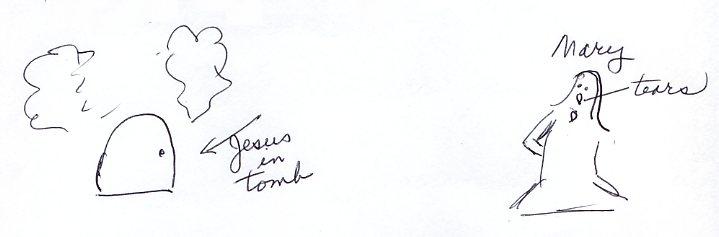 Jesus
in
tomb
Mary
tears